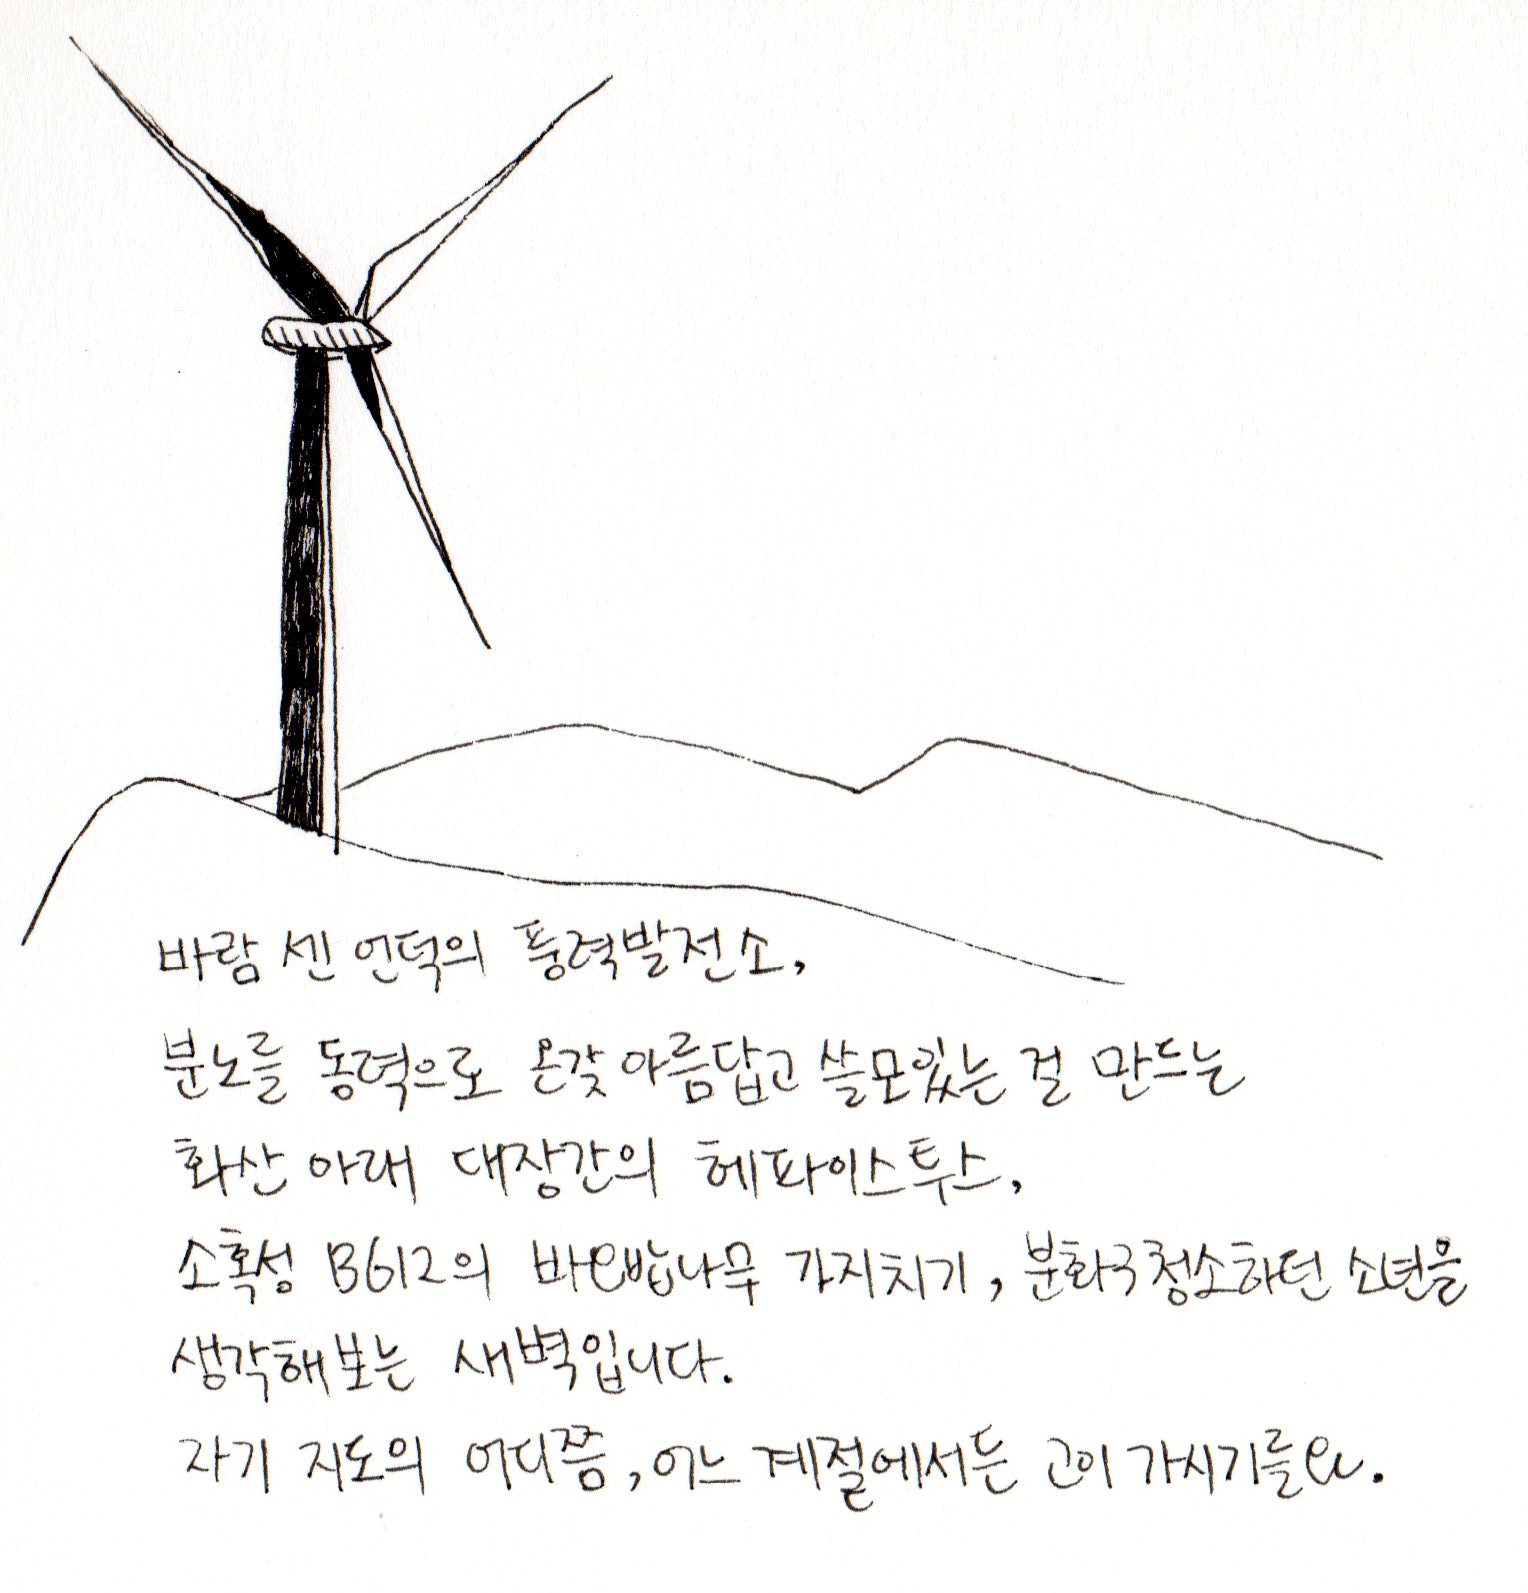 바람 센 언덕의 풍력발전소,
분노를 동력으로 온갖 아름답고 쓸모있는 걸 만드는
화산 아래 대장간의 헤파이스투스,
소혹성 B612의 바오밥나무 가지치기, 분화구청소하던 소년을
생각해보는 새벽입니다.
자기 지도의 어디쯤, 어느 계절에서든 고이 가시기를요.